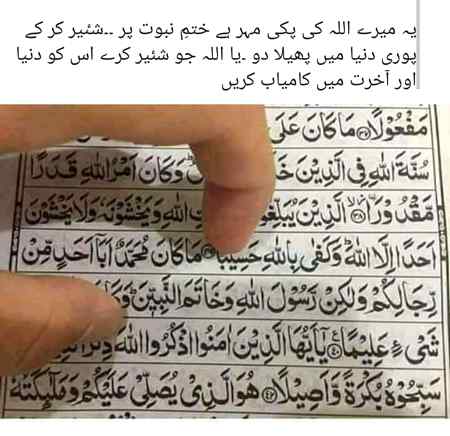 یہ میرے اللہ کی پکی مہر ہے ختمِ نبوت پر ۔۔شئیر کر کے
پوری دنیا میں پھیلا دو ۔یا اللہ جو شئیر کرے اس کو دنیا
اور آخرت میں کامیاب کریں
مَفْعُوْلًا ﴿۳۷﴾ مَا كَانَ عَلَى
سُنَّةَ اللّٰهِ فِی الَّذِیْنَ وَكَانَ اَمْرُ اللّٰهِ قَدَرًا
مَّقْدُوْرَا ﴿۳۸﴾ الَّذِیْنَ اللّٰهِ وَیَخْشَوْنَهٗ وَلَا یَخْشَوْنَ
اَحَدًا اِلَّا اللّٰهَ وَكَفٰی بِاللّٰهِ حَسِیْبًا مَا كَانَ مُحَمَّدٌ اَبَاۤ اَحَدٍ مِّنْ
رِّجَالِكُمْ وَلٰكِنْ رَّسُوْلَ اللّٰهِ وَخَاتَمَ النَّبِیّٖنَ
شَیْءٍ عَلِیْمًا ﴿۴۰﴾ یٰۤاَیُّهَا الَّذِیْنَ اٰمَنُوا اذْكُرُوا اللّٰهَ
سَبِّحُوْهُ بُكْرَةً وَّاَصِیْلًا ﴿۴۲﴾ هُوَ الَّذِیْ یُصَلِّیْ عَلَیْكُمْ وَمَلٰٓىِٕكَتُهٗ